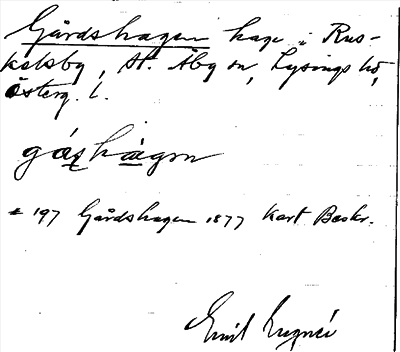 Gårdshagen hage i Rus-
kelsby, St. Åby sn, Lysings hd,
Österg. l.
gáʂhàgɒn
≠ 197 Gårdshagen 1877 Kart Beskr.
Emil